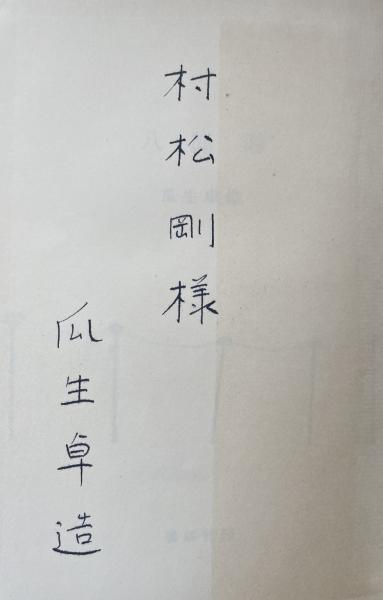 村松剛様
瓜生卓造